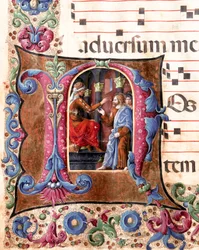 aduersum me
N Os
tem